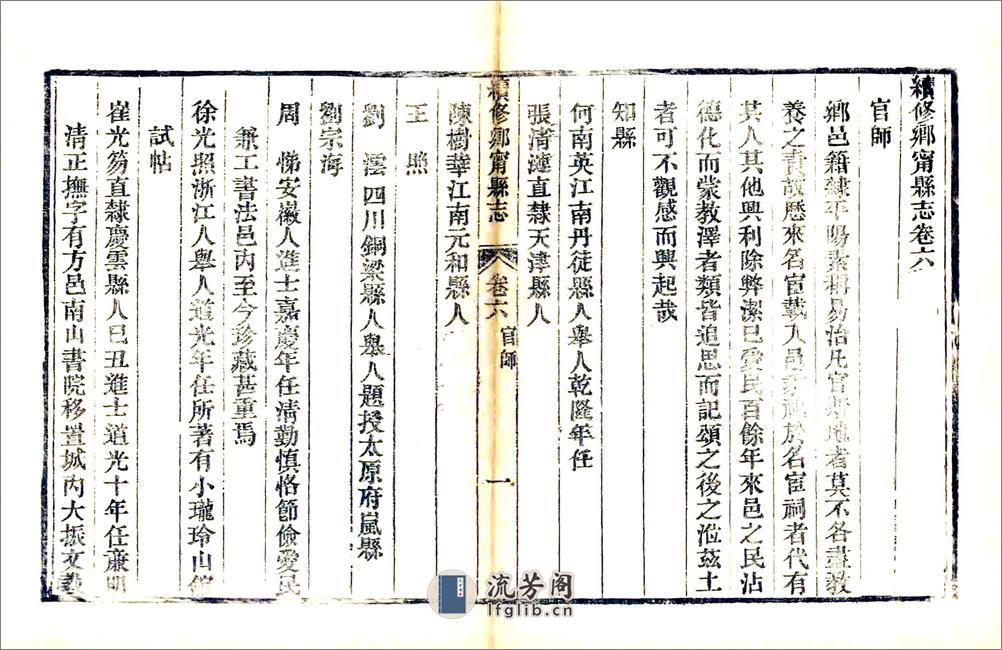 續修鄉甯縣志卷六
官師
鄉邑籍隸平陽素稱易治凡官斯地者莫不各盡教
養之責故歷來名宦載入邑乘祀於名宦祠者代有
其人其他興利除弊潔已愛民百餘年來邑之民沾
德化而蒙教澤者類皆追思而記頌之後之涖茲土
者可不觀感而興起哉
知縣
何南英江南丹徒縣人舉人乾隆年任
張清漣直隸天津縣人
續修鄉甯縣志 卷六 官師 一
陳樹華江南元和縣人
王 照
劉 澐四川銅梁縣人舉人題授太原府嵐縣
劉宗海
周 悌安徽人進士嘉慶年任清勤慎恪節儉愛民
兼工書法邑內至今珍藏甚重焉
徐光照浙江人舉人道光年任所著有小瓏玲山館
試帖
崔光笏直隸慶雲縣人已丑進士道光十年任廉明
清正撫字有方邑南山書院移置城內大振文教
流芳阁
lfglib.cn